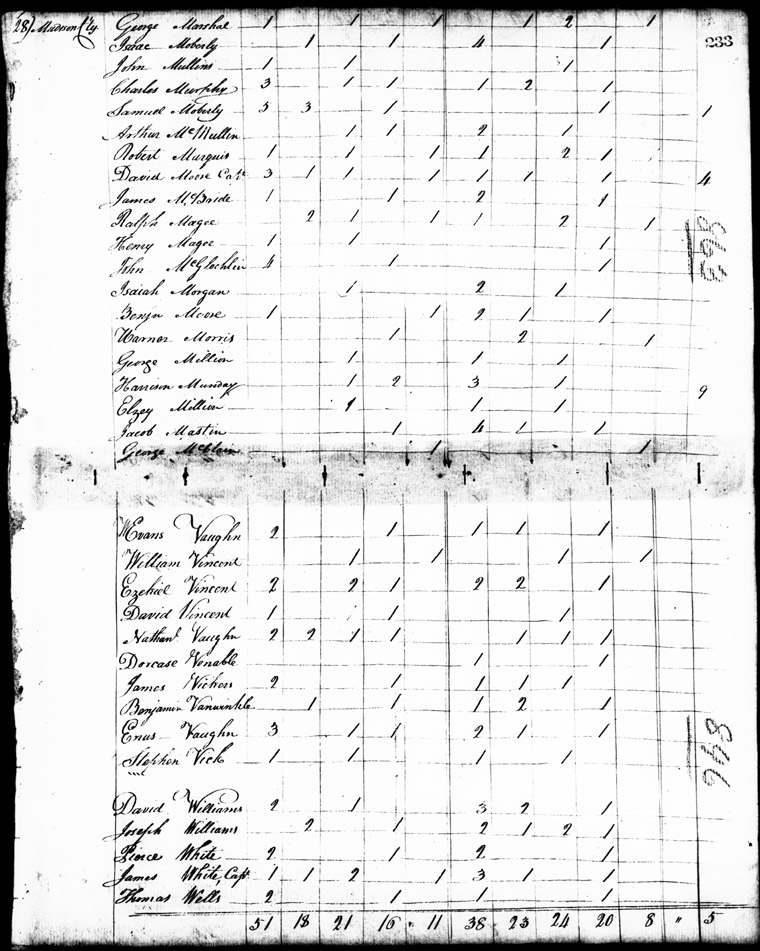 28) Madison Cty George Marshal 1 1 1 1 2 1
Isaac Moberly 1 1 4 1 233
John Mullins 1 1 1
Charles Murphy 3 1 1 1 2 1
Samuel Moberly 5 3 1 1 1
Arthur McMullin 1 1 2 1
Robert Marquis 1 1 1 1 2 1
David Moore Capt 3 1 1 1 1 1 1 4
James McBride 1 1 2 1
Ralph Magee 2 1 1 1 2 1
Henry Magee 1 1 1
John McGlochlin 4 1 1
Isaiah Morgan 1 2 1
Benjn Moore 1 1 2 1 1
Warner Morris 1 2 1
George Million 1 1 1
Harrison Munday 1 2 3 1 9
Elzey Million 1 1 1
Jacob Mastin 1 4 1 1
George 1 1
Evans Vaughn 2 1 1 1 1
William Vincent 1 1 1 1
Ezekiel Vincent 2 2 1 2 2 1
David Vincent 1 1 1
Nathanl Vaughn 2 2 1 1 1 1 1
Dorcase Venable 1 1
James Vickers 2 1 1 1 1
Benjamin Vanwinkle 1 1 1 2 1
Enus Vaughn 3 1 1 2 1 1
Stephen Vick 1 1 1 1
David Williams 2 1 3 2 1
Joseph Williams 2 1 2 1 2 1
Pierce White 2 1 2 1
James White, Capt 1 1 2 1 3 1 1
Thomas Wells 2 1 1 1
51 18 21 16 11 38 23 24 20 8 " 5